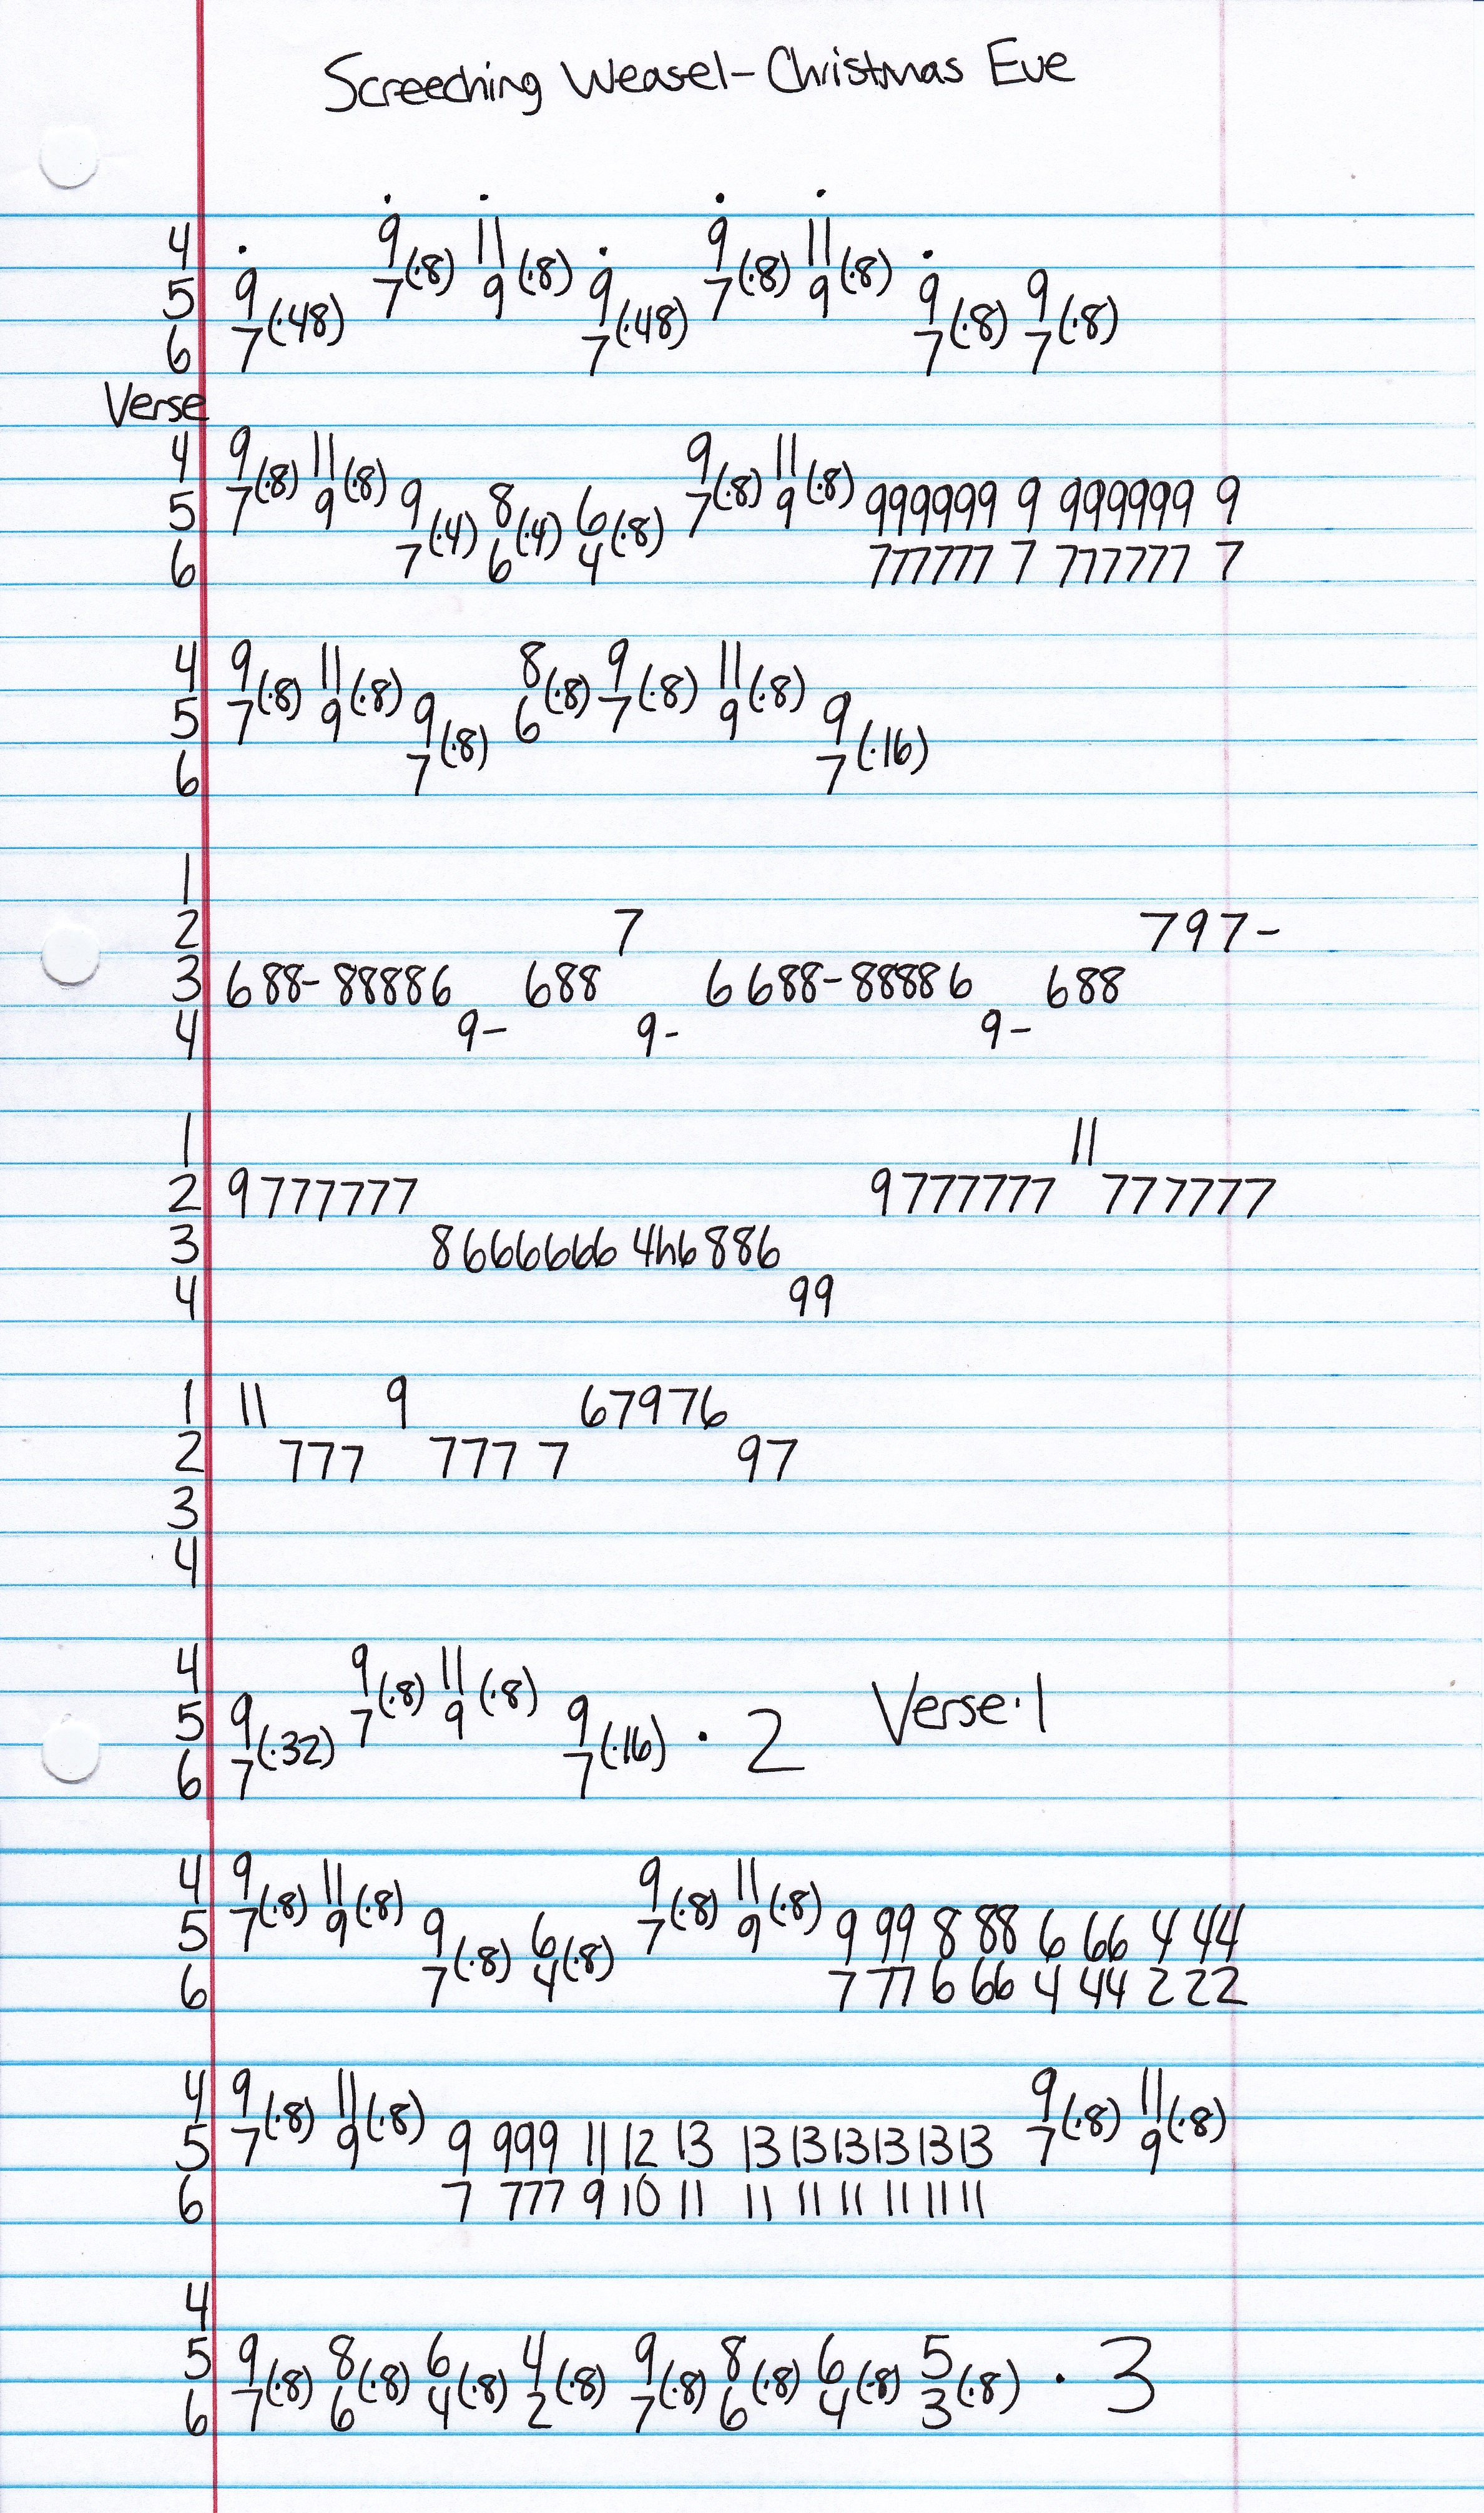 Screeching Weasel-Christmas Eve
. . . .
4 . 9(·8) 11(·8) . 9(·8) 11(·8) .
5 9(·48) 7 9 9(·48) 7 9 9(·8) 9(·8)
6 7 7 7 7
Verse
4 9(·8) 11(·8) 9(·8) 11(·8)
5 7 9 9(·4) 8(·4) 6(·8) 7 9 999999 9 999999 9
6 7 6 4 777777 7 777777 7
4 9(·8) 11(·8) 8(·8) 9(·8) 11(·8)
5 7 9 9(·8) 6 7 9 9(·16)
6 7 7
1
2 7 797-
3 688-88886 688 6688-88886 688
4 9- 9- 9-
1 11
2 9777777 9777777 777777
3 8666666 4h6886
4 99
1 11 9 67976
2 777 777 7 97
3
4
4 9(·8) 11(·8)
5 9(·32) 7 9 9(·16) · 2 Verse·1
6 7 7
4 9(·8) 11(·8) 9(·8) 11(·8)
5 7 9 9(·8) 6(·8) 7 9 9 99 8 88 6 66 4 44
6 7 4 7 77 6 66 4 44 2 22
4 9(·8) 11(·8) 9(·8) 11(·8)
5 7 9 9 999 11 12 13 13 1313131313 7 9
6 7 777 9 10 11 11 11 11 11 11 11
4
5 9(·8) 8(·8) 6(·8) 4(·8) 9(·8) 8(·8) 6(·8) 5(·8) · 3
6 7 6 4 2 7 6 4 3